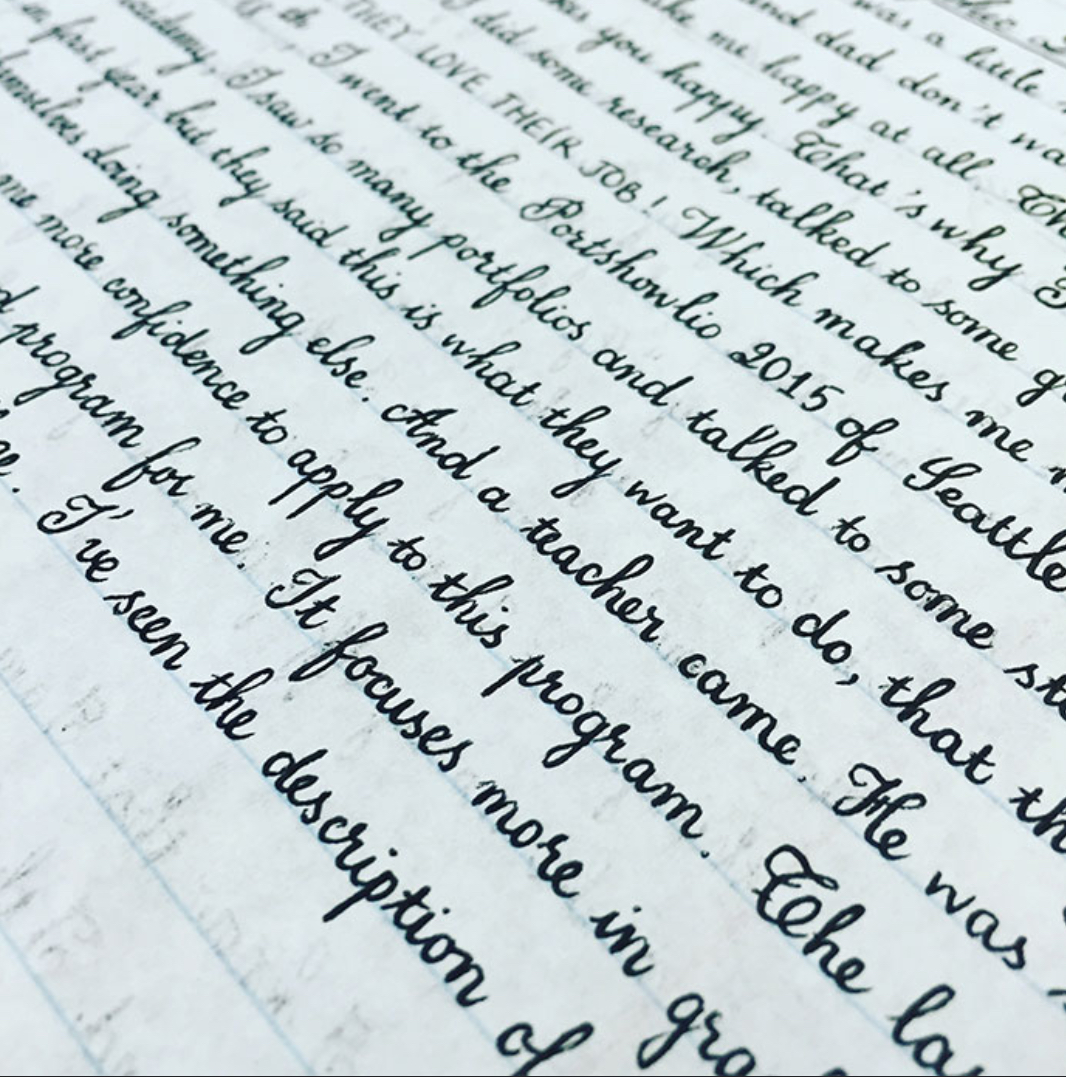 was a little
and dad don't wa
me happy at all. Th
you happy. That's why I
did some research, talked to some gr
THEY LOVE THEIR JOB! Which makes me
I went to the Portshowlio 2015 of Seattle
I saw so many portfolios and talked to some st
year but they said this is what they want to do, that th
doing something else. And a teacher came. He was
me more confidence to apply to this program. The la
program for me. It focuses more in gra
I've seen the description of